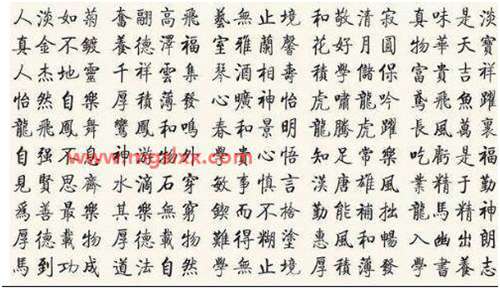 人淡如菊 奮翮高飛 藝無止境 和敬清寂 真味是淡
真金不鍍 養德澤福 室雅蘭馨 花好月圓 物華天寶
人杰地靈 千祥雲集 琴酒相壽 積學儲保 富貴吉祥
怡然自樂 厚積薄發 心曠神怡 虎嘯龍吟 鳶飛魚躍
龍飛鳳舞 鸞鳳和鳴 春和景明 龍騰虎躍 長風萬裏
自强不息 神游物外 學貴心悟 知足常樂 吃虧是福
見賢思齊 水滴石穿 敏事慎言 漢唐雄風 業精于勤
爲善最樂 其樂無窮 而不捨 勤能補拙 龍馬精神
厚德載物 厚德載物 難得糊塗 惠風和暢 入幽出朗
馬到功成 道法自然 學無止境 厚積薄發 學書養志